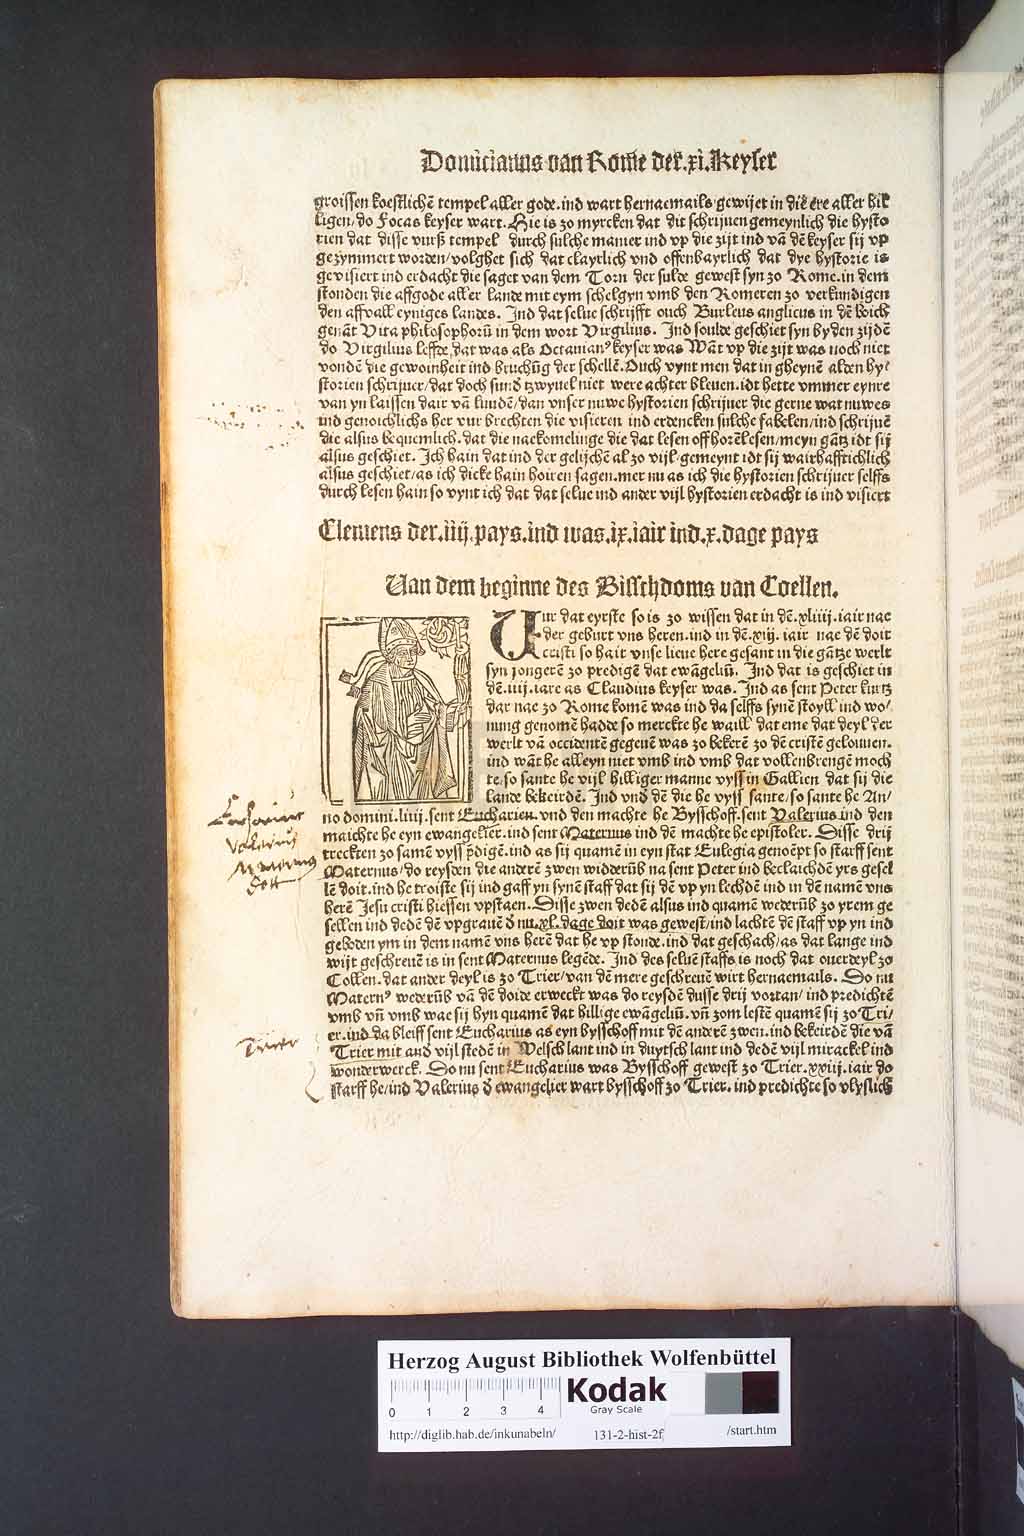 Domicianus van Rome der .xi. Keyser
groissen koestlichē tempel aller gode. ind wart hernaemails gewijet in die ere aller hil
ligen/do Focas keyser wart. Hie is zo myrcken dat dit schrijuen gemeynlich die hysto
rien dat disse vurß tempel durch sulche manier ind vp die zijt ind vā dē keyser sij vp
gezymmert worden/volghet sich dat claytlich vnd offenbayrlich dat dye hystorie is
gevisiert ind erdacht die saget van dem Torn der sulde gewest syn zo Rome. in dem
stonden die affgode aller lande mit eym schelgyn vmb den Romeren zo verkundigen
den affvall eyniges landes. Ind dat selue schrijfft ouch Burleus anglicus in dē boich
genāt Vita philosophorū in dem wort Virgilius. Ind soulde geschiet syn by den zijdē
do Virgilius leffde/dat was als Octavian⁹ keyser was Wāt vp die zijt was noch niet
vondē die gewoinheit ind bruchūg der schellē. Ouch vynt men dat in gheynē alden hy⸗
storien schrijuer/dat doch sund tzwyuel niet were achter bleuen. idt hette vmmer eynre
van yn laissen dair vā luudē/dan vnser nuwe hystorien schrijuer die gerne wat nuwes
ind genoichlichs her vur brechten die visieren ind erdencken sulche fabelen/ind schrijuē
die alsus bequemlich. dat die naekomelinge die dat lesen off horē lesen/meyn gātz idt sij
alsus geschiet. Ich hain dat ind der gelijchē al zo vijl gemeynt idt sij wairhafftichlich
alsus geschiet/as ich dicke hain hoiren sagen. mer nu as ich die hystorien schrijuer selffs
durch lesen hain so vynt ich dat dat selue ind ander vijl hystorien erdacht is ind visiert
Clemens der .iiij. pays. ind was .ix. iair ind .x. dage pays
Van dem beginne des Bisschdoms van Coellen.
Vur dat eyrste so is zo wissen dat in dē .xliiij. iair nae
der geburt vns heren. ind in dē .xij. iair nae dē doit
cristi so hait vnse lieue here gesant in die gātze werlt
syn jongerē zo predigē dat ewāgeliū. Ind dat is geschiet in
dē .iiij. iare as Claudius keyser was. Ind as sent Peter kurtz
dar nae zo Rome komē was ind da selffs synē stoyll ind wo⸗
nung genomē hadde so merckte he waill dat eme dat deyl der
werlt vā occidentē gegeuē was zo bekerē zo dē cristē gelouuen.
ind wāt he alleyn niet vmb ind vmb dat vollenbrengē moch
te/so sante he vijl hilliger manne vyss in Gallien dat sij die
lande bekeirdē. Ind vnd dē die he vyss sante/so sante he An/
no domini. liiij. sent Eucharien. vnd den machte he Bysschoff. sent Valerius ind den
maichte he eyn ewangelier. ind sent Maternus ind dē machte he epistoler. Disse drij
treckten zo samē vyss p̄digē. ind as sij quamē in eyn stat Eulegia genoēpt so starff sent
Maternus/do reysden die anderē zwen widderūb na sent Peter ind beclaichdē yrs gesel
lē doit. ind he troiste sij ind gaff yn synē staff dat sij dē vp yn lechdē ind in dē namē vns
herē Jesu cristi hiessen vpstaen. Disse zwen dedē alsus ind quamē wederūb zo yrem ge
sellen ind dedē dē vpgrauē d̄ nu .xl. dage doit was gewest/ind lachtē dē staff vp yn ind
geboden ym in dem namē vns herē dat he vp stonde. ind dat geschach/as dat lange ind
wijt geschreuē is in sent Maternus legēde. Ind des seluē staffs is noch dat ouerdeyl zo
Collen. dat ander deyl is zo Trier/van dē mere geschreuē wirt hernaemails. Do nu
Matern⁹ wederūb vā dē doide erweckt was do reysdē dusse drij vortan/ ind predichtē
vmb vn̄ vmb wae sij hyn quamē dat hillige ewāgeliū. vn̄ zom lestē quamē sij zo Tri/
er. ind da bleiff sent Eucharius as eyn bysschoff mit dē anderē zwen. ind bekeirdē die vā
Trier mit and vijl stedē in Welsch lant ind in duytsch lant ind dedē vijl mirackel ind
wonderwerck. Do nu sent Eucharius was Bysschoff gewest zo Trier .xxiij. iair do
starff he/ind Valerius d̄ ewangelier wart bysschoff zo Trier. ind predichte so vlyslich
Valerius
Maternus
Trier
Herzog August Bibliothek Wolfenbüttel
0 1 2 3 4
Kodak
Gray Scale
http://diglib.hab.de/inkunabeln/ 131-2-hist-2f /start.htm